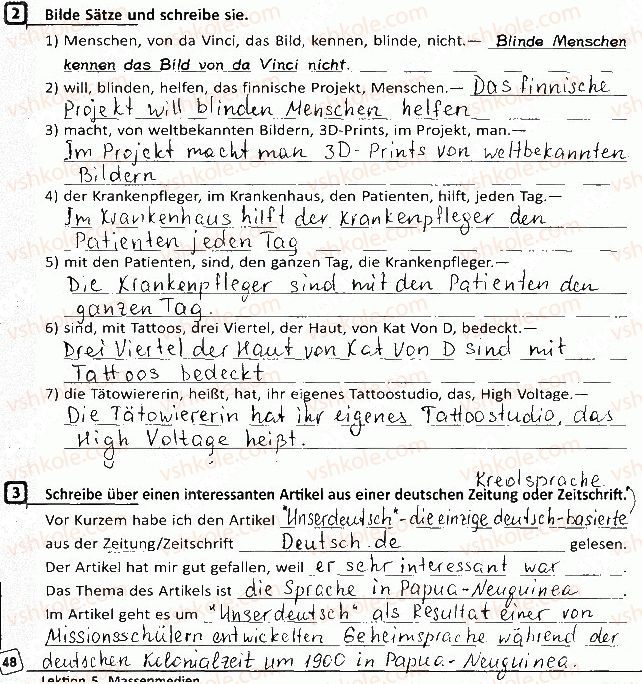 2 Bilde Sätze und schreibe sie.
1) Menschen, von da Vinci, das Bild, kennen, blinde, nicht.— Blinde Menschen
kennen das Bild von da Vinci nicht.
2) will, blinden, helfen, das finnische Projekt, Menschen.— Das finnische
Projekt will blinden Menschen helfen
3) macht, von weltbekannten Bildern, 3D-Prints, im Projekt, man.—
Im Projekt macht man 3D-Prints von weltbekannten
Bildern
4) der Krankenpfleger, im Krankenhaus, den Patienten, hilft, jeden Tag.—
Im Krankenhaus hilft der Krankenpfleger den
Patienten jeden Tag
5) mit den Patienten, sind, den ganzen Tag, die Krankenpfleger.—
Die Krankenpfleger sind mit den Patienten den
ganzen Tag.
6) sind, mit Tattoos, drei Viertel, der Haut, von Kat Von D, bedeckt.—
Drei Viertel der Haut von Kat Von D sind mit
Tattoos bedeckt
7) die Tätowiererin, heißt, hat, ihr eigenes Tattoostudio, das, High Voltage.—
Die Tätowererin hat ihr eigenes Tattoostudio, das
High Voltage heißt.
Kreolsprache
3 Schreibe über einen interessanten Artikel aus einer deutschen Zeitung oder Zeitschrift.
Vor Kurzem habe ich den Artikel "Unserdeutsch"-die einzige deutsch-basierte
aus der Zeitung/Zeitschrift Deutsch.de gelesen.
Der Artikel hat mir gut gefallen, weil er sehr interessant war.
Das Thema des Artikels ist die Sprache in Papua-Neuguinea.
Im Artikel geht es um "Unserdeutsch" als Resultat einer von
Missionsschülern entwickelten Geheimsprache während der
48 deutschen Kolonialzeit um 1900 in Papua-Neuguinea.
Lektion 5. Massenmedien
vshkole.com